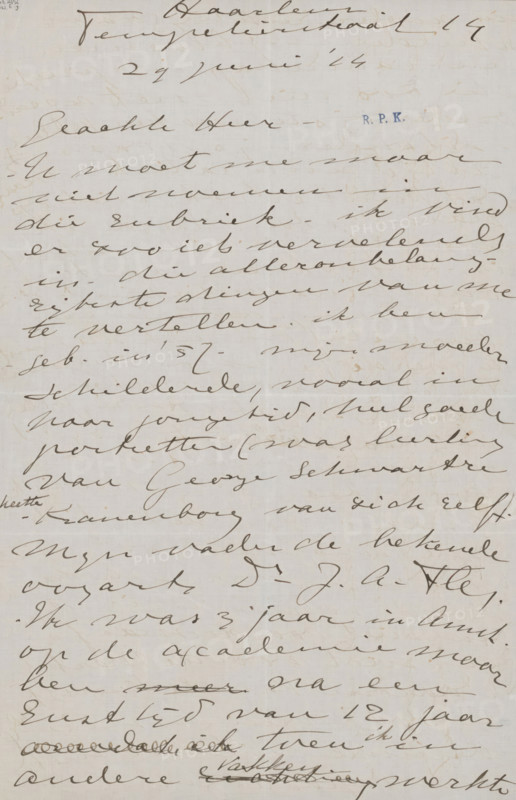 Haarlem
Tempelierstraat 14
29 juni '14
Geachte Heer -
R.P.K.
U moet me maar
niet noemen in
die rubriek. ik vind
er zoo iets vervelends
in - die alleronbelang-
rijkste dingen van me
te vertellen. ik ben
geb. in '57 - mijn moeder
schilderde, vooral in
haar jongetijd, heel goede
portretten (was leerling
van George Schwartze
heette
- Kranenborg van zich zelf).
Mijn vader de bekende
oogarts Dr. J. A. Fles,
Ik was 3 jaar in Amst.
op de academie maar
ben na een
rusttijd van 12 jaar
toen ik in
andere vakken werkte
PHOTO12